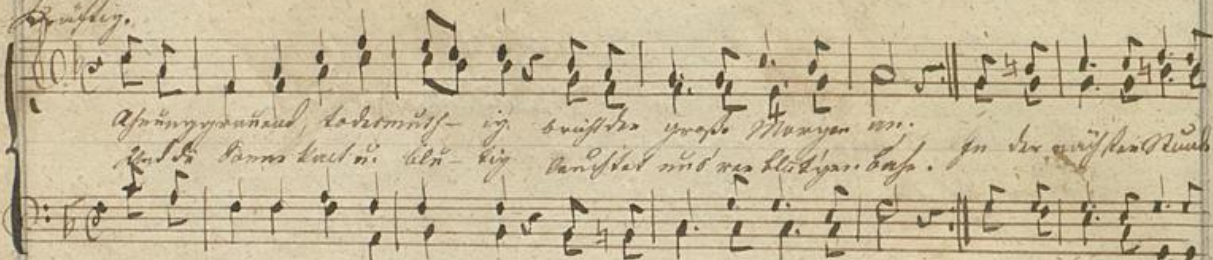 Kräftig.
Ahnunggrauend, todesmuth- ig bricht der große Morgen an.
Und die Sonne kalt u. blu- tig leuchtet uns'rer blutgen Bahn. In der nächsten Stund